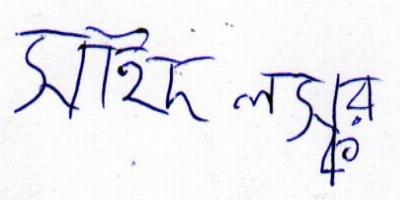 সাইদ লস্কর